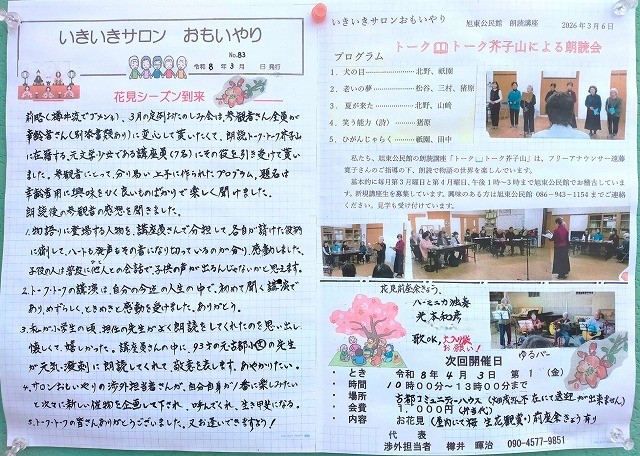 いきいきサロン おもいやり
No.83
令和 8年 3月 日 発行
花見シーズン到来
前略(樽井流でゴメン)、3月の定例おたのしみ会は、参観者さん全員が
幸齢者さん(別称者譲りあり)に変心して貰いたくて、朗読トーク・トーク芥子山
に在籍する、元文学少女である講座員(7名)にその役を引き受けて貰い
ました。幸齢者にとって、分り易い上手に作られたプログラム、題名は
幸齢者用に興味をせく良いものばかりで楽しく聞けました。
朗読後の参観者の感想を聞きました。
1. 物語りに登場する人物を、講座員さんで分担して、各自が請けた役柄
に徹して、ハートも発声もその者になり切っているのが分り、感動しました。
2. トーク・トークの講演は、自分の今迄の人生の中で、初めて聞く講演で
あり、めずらしく、ときめきと感動を受けました。ありがとう。
3. 私が小学生の頃、担任の先生がよく朗読をしてくれたのを思い出し
懐しくて、嬉しかった。講座員さんの中に、93才の元古都小の先生
が元気・溌剌に朗読してくれて、敬意を表します。あやかりたい。
4. サロンおもいやりの渉外担当者さんが、自分自身が1番に楽しみたい
と次々に新しい催物を企画して下され、呼んでくれ、生き甲斐になる。
5. トーク・トークの皆さんありがとうございました。又お逢いできますよう!
いきいきサロンおもいやり 旭東公民館 朗読講座 2026年3月6日
トーク トーク芥子山による朗読会
プログラム
1. 犬の目…………北野、祇園
2. 老いの夢…………松谷、三村、猪原
3. 夏が来た…………北野、山崎
4. 笑う能力(詩)…………猪原
5. ひがんじゃらく…………祇園、田中
私たち、旭東公民館の朗読講座「トーク トーク芥子山」は、フリーアナウンサー遠藤
寛子さんのご指導の下、朗読で物語の世界を楽しんでいます。
基本的に毎月第3月曜日と第4月曜日、午後1時~3時まで旭東公民館でお稽古していま
す。新規講座生を募集しています。興味のある方は旭東公民館 086-943-1154までご連絡
ください。見学も受け付けています。
花見前座余きょう、
ハーモニカ独奏
光本和彦
歌OK、
お願い!
ゆるバー
次回開催日
・ とき 令和 8年 4月 3日 第1(金)
・ 時間 10時00分~13時00分まで
・ 場所 古都コミュニティーハウス
・ 会費 1,000円(弁当代)
・ 内容 お花見(屋内にて桜 生花観賞)前座余きょう有り
代 表
渉外担当者 樽井 暉治 090-4577-9851